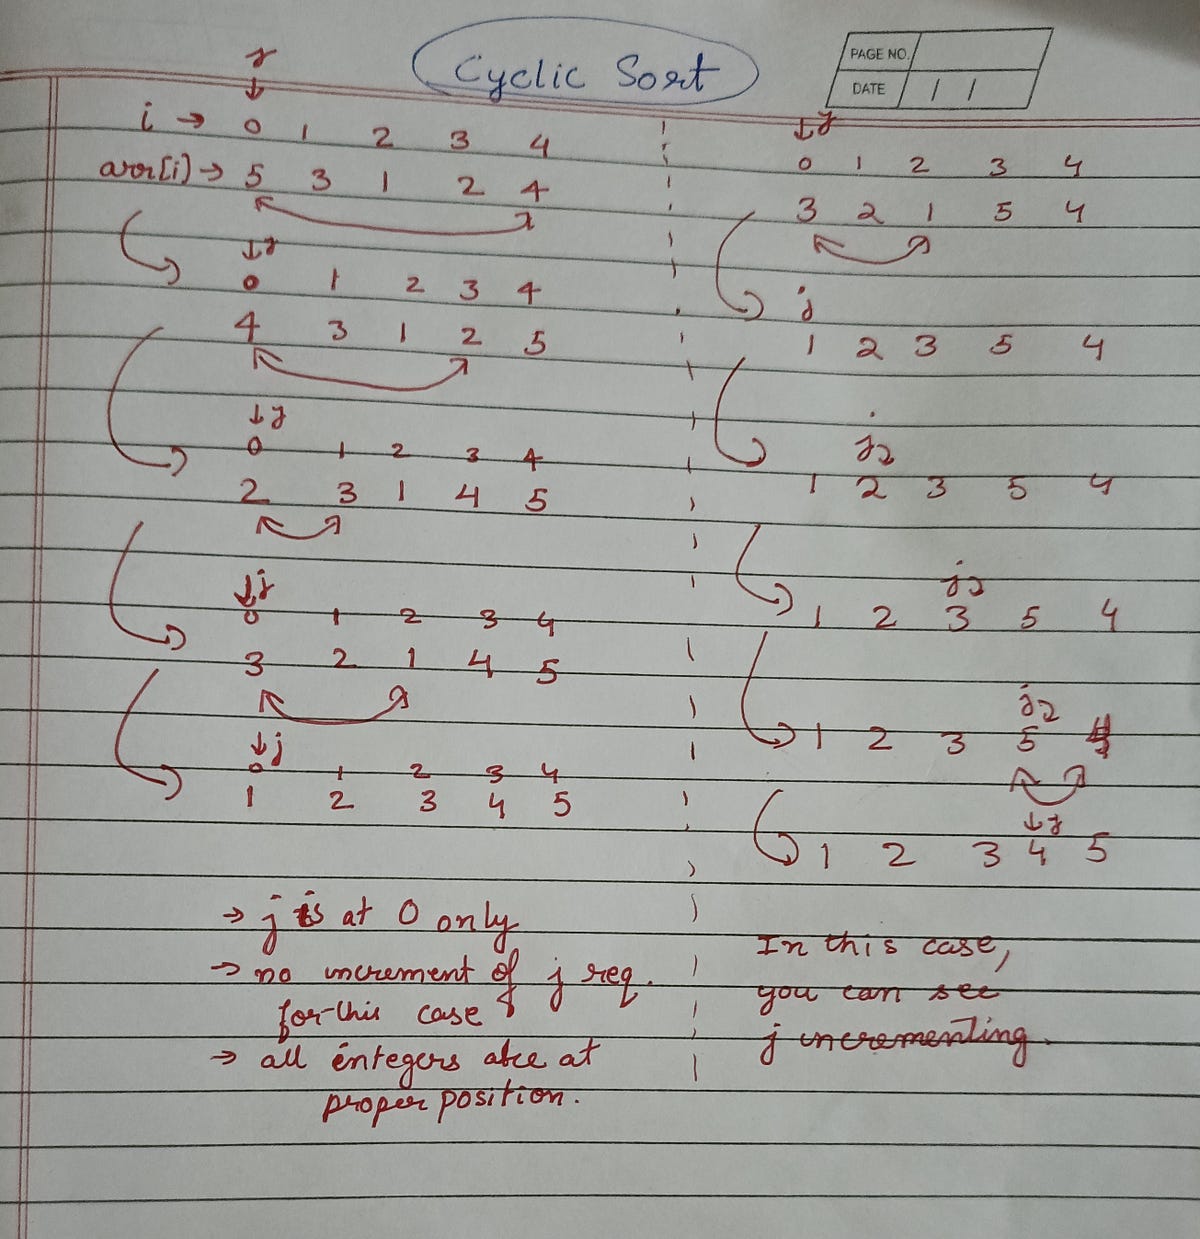 Cyclic Sort
PAGE NO.
DATE / /
j
↓
i → 0 1 2 3 4
arr[i] → 5 3 1 2 4
↓j
0 1 2 3 4
4 3 1 2 5
↓j
0 1 2 3 4
2 3 1 4 5
↓j
0 1 2 3 4
3 2 1 4 5
↓j
0 1 2 3 4
1 2 3 4 5
→ j is at 0 only
→ no increment of j req.
for this case
→ all integers are at
proper position.
↓j
0 1 2 3 4
3 2 1 5 4
j
1 2 3 5 4
j
1 2 3 5 4
j
1 2 3 5 4
j
1 2 3 5 4
↓j
1 2 3 4 5
In this case,
you can see
j incrementing.